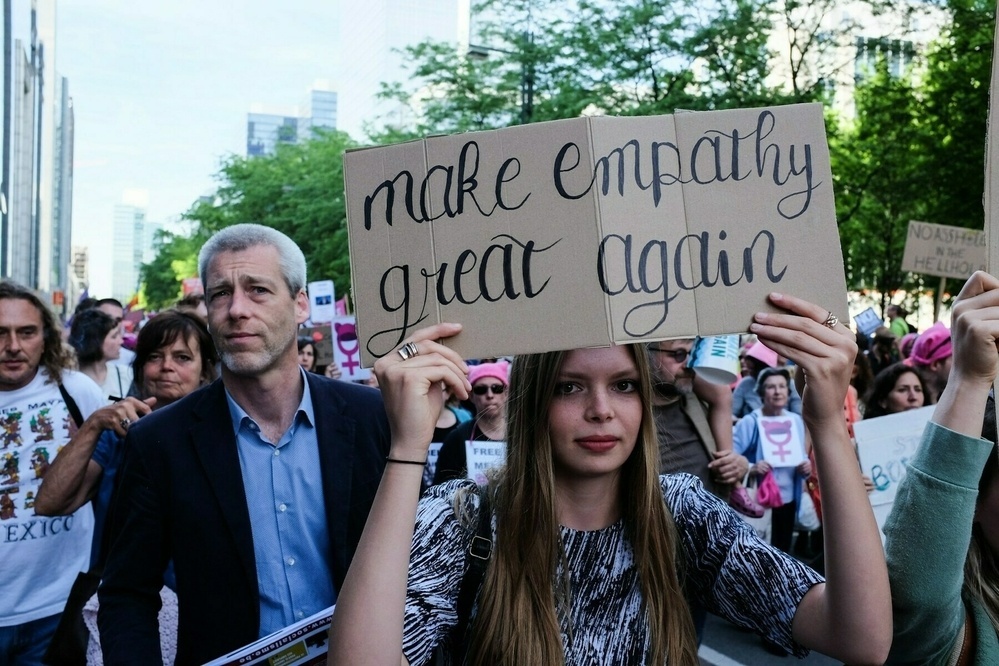 make empathy
great again
NO ASSHOLES
IN THE
HELLHOLE
MAYA
EXICO
FREE
www.socialisme.be